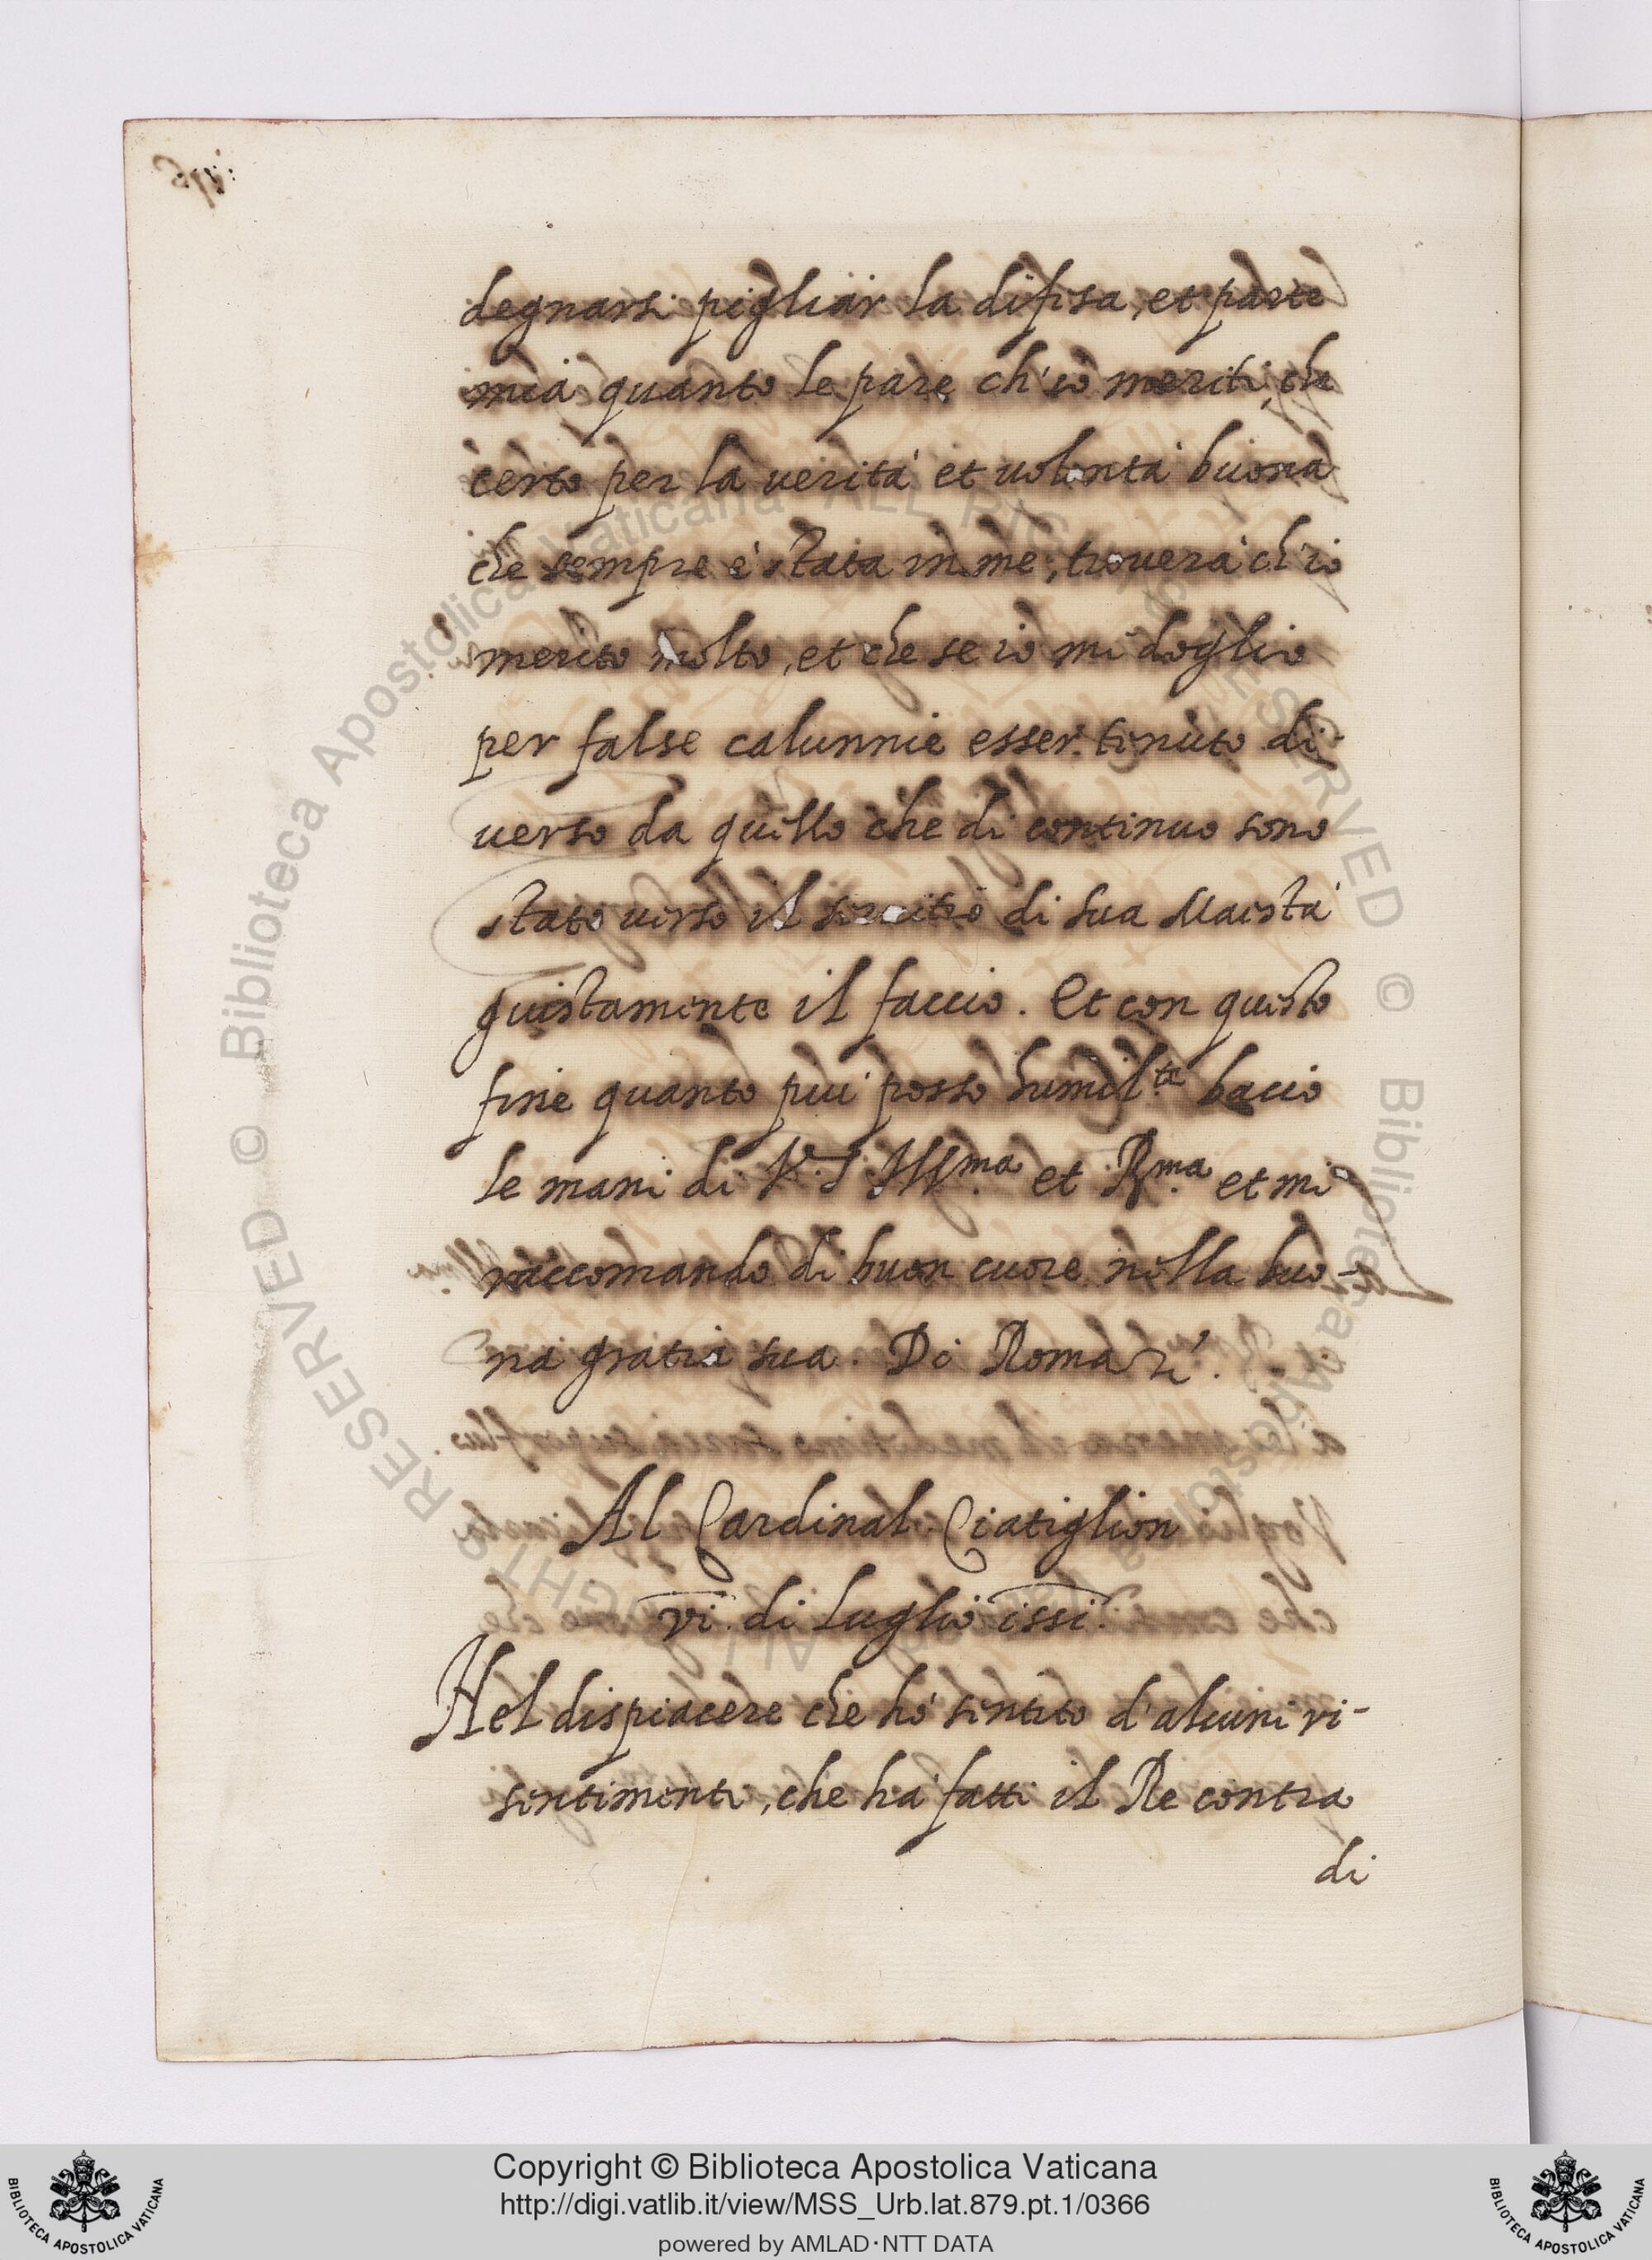 degnarsi pigliar la difesa, et parte
mia quanto le pare ch'io meriti, che
certo per la verità et uolontà buona
che sempre è stata in me, trouerà ch'io
merito molto, et che se io mi doglio
per false calunnie esser tenuto di-
uerso da quello che di continuo sono
stato uerso il seruitio di sua Maestà
giustamente il faccio. Et con questo
fine quanto più posso humil.te bacio
le mani di V. S. Ill.ma et R.ma et mi
raccomando di buon cuore nella buo-
na gratia sua. Di Roma li.
Al Cardinal Ciatiglion
vi. di Luglio 1551.
Nel dispiacere che hò sentito d'alcuni ri-
sentimenti, che hà fatti il Re contra
di
Biblioteca Apostolica Vaticana ALL RIGHTS RESERVED © Biblioteca Apostolica Vaticana ALL RIGHTS RESERVED ©
Copyright © Biblioteca Apostolica Vaticana
http://digi.vatlib.it/view/MSS_Urb.lat.879.pt.1/0366
powered by AMLAD·NTT DATA
BIBLIOTECA APOSTOLICA VATICANA
BIBLIOTECA APOSTOLICA VATICANA